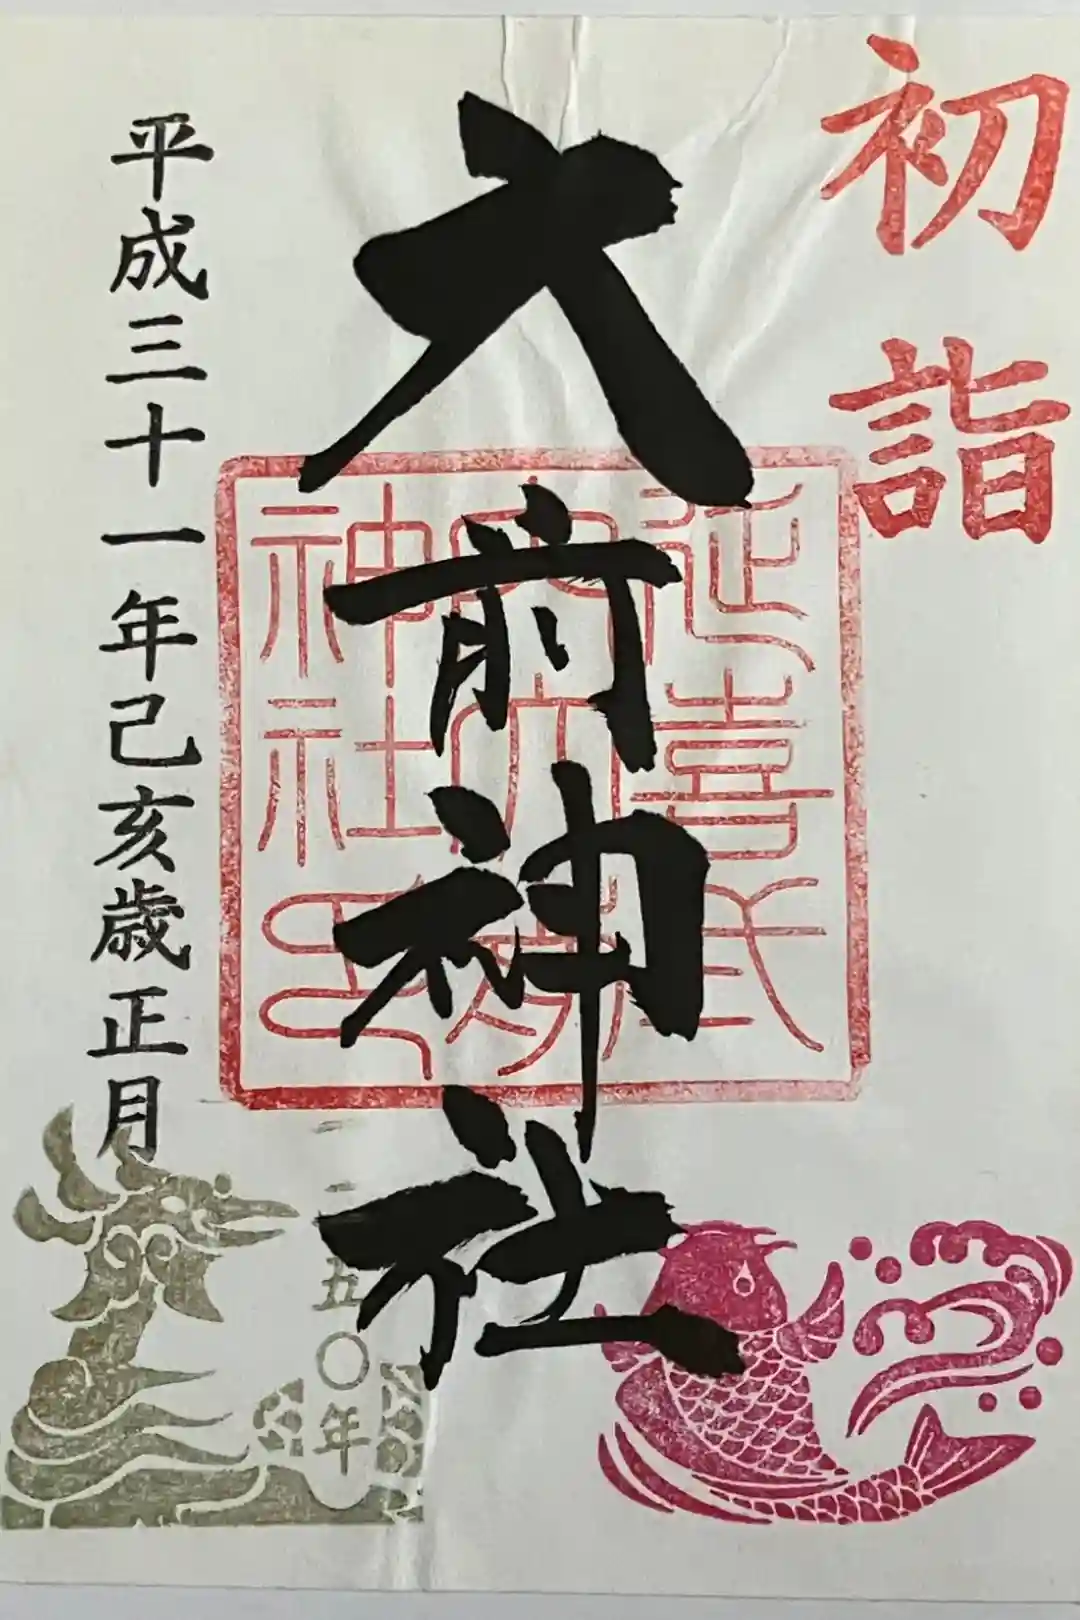 初詣
大前神社
延喜式
内大前
神社印
平成三十一年己亥歳正月
五〇年